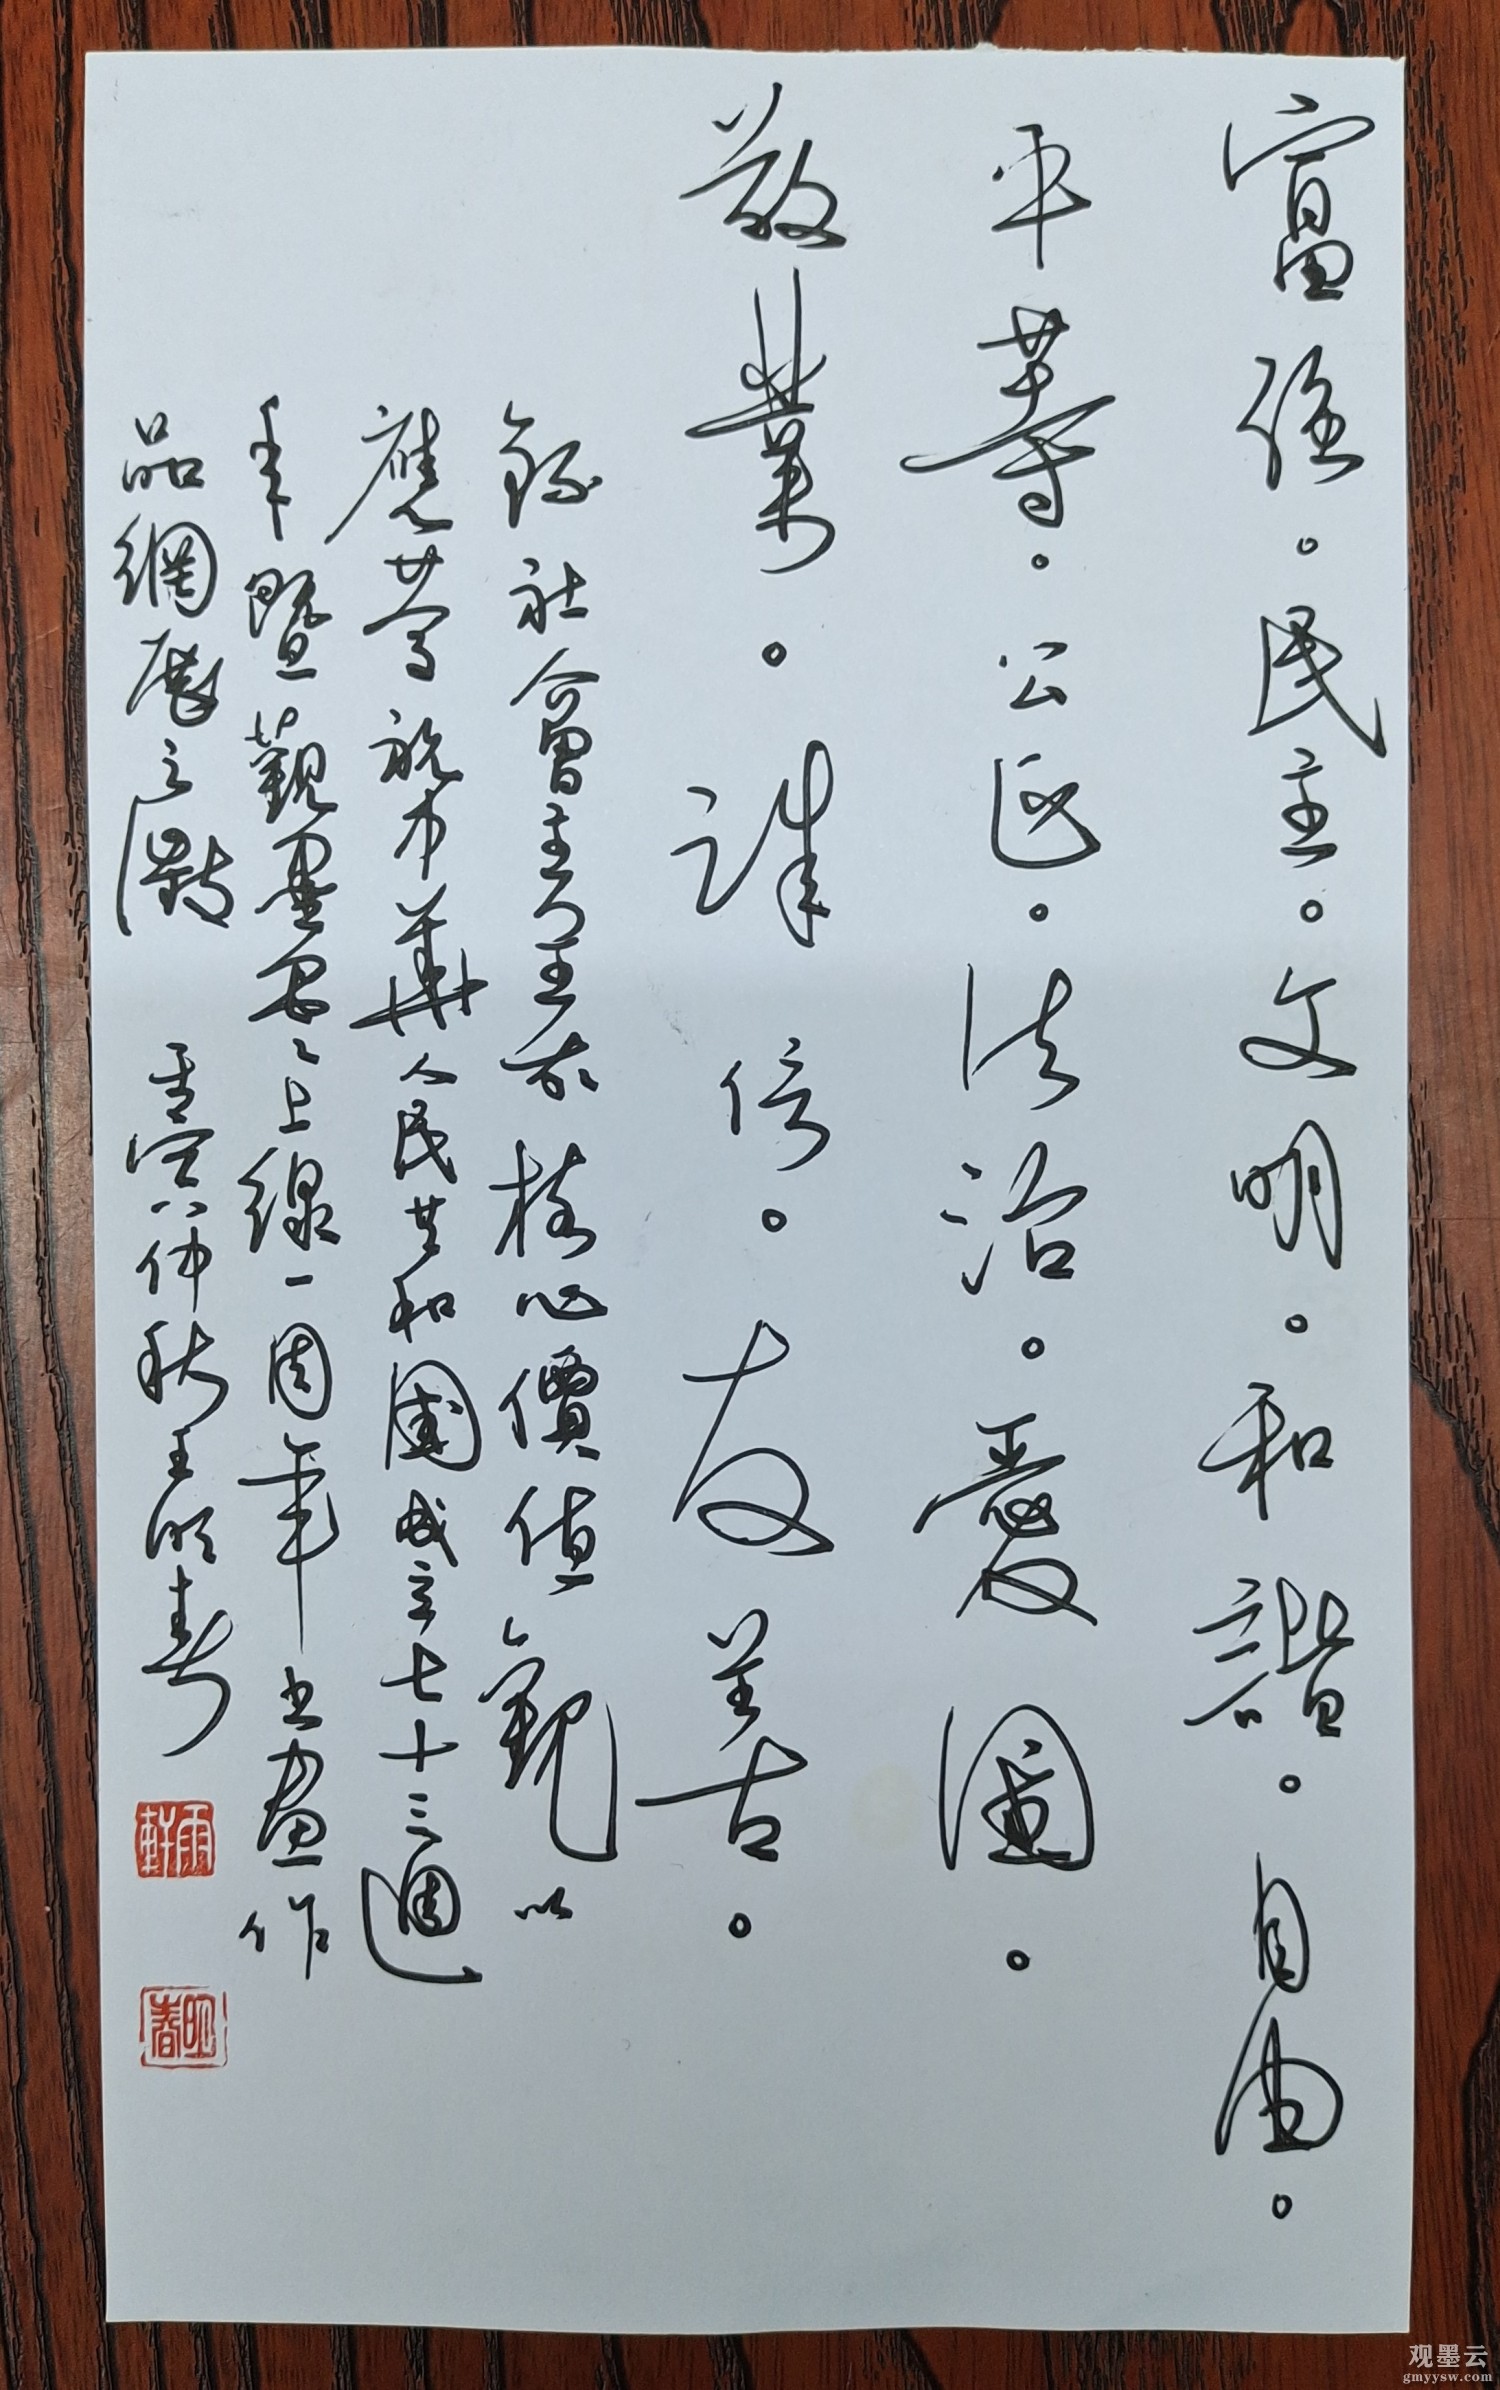 富強。民主。文明。和諧。自由。
平等。公正。法治。愛國。
敬業。誠信。友善。
錄社會主义王義核心價值觀以
應薈祝中華人民共和國成立七十三週
年暨觀墨雲上線一周年书畫作
品網展之邀
壬寅仲秋王明春
雨軒
明春
观墨云
gmyysw.com